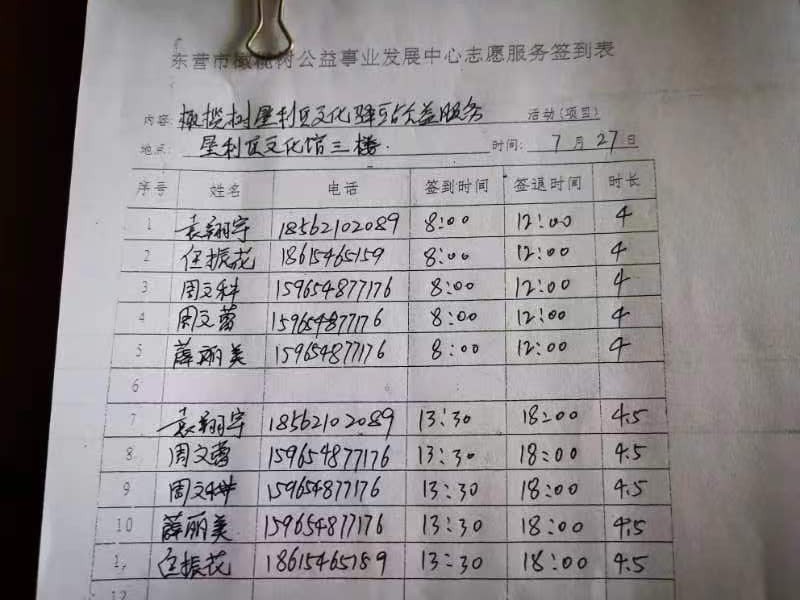 东营市橄榄树公益事业发展中心志愿服务签到表
内容: 橄榄树垦利区文化驿站公益服务 活动(项目)
地点: 垦利区文化馆三楼. 时间: 7月27日
序号 姓名 电话 签到时间 签退时间 时长
1 袁翔宇 18562102089 8:00 12:00 4
2 任振花 18615465159 8:00 12:00 4
3 周文科 15965487176 8:00 12:00 4
4 周文蓉 15965487176 8:00 12:00 4
5 薛丽美 15965487176 8:00 12:00 4
6
7 袁翔宇 18562102089 13:30 18:00 4.5
8 周文蓉 15965487176 13:30 18:00 4.5
9 周文 15965487176 13:30 18:00 4.5
10 薛丽美 15965487176 13:30 18:00 4.5
1 任振花 18615465159 13:30 18:00 4.5
12